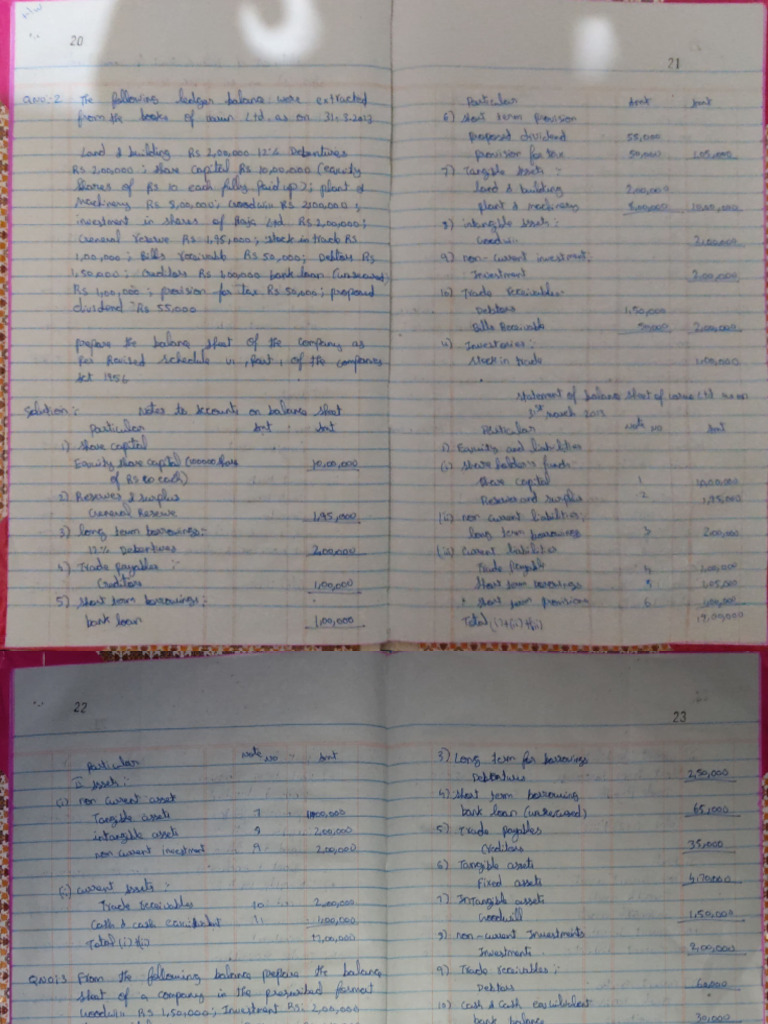 H/W
20
Q.NO:-2 The following ledger balance were extracted
from the books of Ltd. as on 31-3-2013
Land & building Rs 2,00,000 12% Debentures
Rs 2,00,000; share capital Rs 10,00,000 (equity
shares of Rs 10 each fully paid up); plant &
machinery Rs 8,00,000; Goodwill Rs 200,000;
investment in shares of Raja Ltd Rs 2,00,000;
General reserve Rs 1,95,000; stock in trade Rs
1,00,000; Bills receivable Rs 50,000; Debtors Rs
1,50,000; creditors Rs 1,00,000 bank loan (unsecured)
Rs 1,00,000; provision for tax Rs 50,000; proposed
dividend Rs 55,000
prepare the balance sheet of the company as
per Revised schedule VI, Part 1 of the companies
Act 1956
Solution:- Notes to accounts on balance sheet
Particular Amt Amt
1) Share capital
Equity share capital (100000 shares 10,00,000
of Rs 10 each)
2) Reserves & surplus
General Reserve 1,95,000
3) long term borrowings:-
12% Debentures 2,00,000
4) Trade payables :-
Creditors 1,00,000
5) Short term borrowings:
bank loan 1,00,000
21
Particular Amt Amt
6) short term provision
proposed dividend 55,000
provision for tax 50,000 1,05,000
7) Tangible Assets :-
land & building 2,00,000
plant & machinery 8,00,000 10,00,000
8) intangible Assets:
Goodwill 2,00,000
9) non-current investment:
Investment 2,00,000
10) Trade receivables:-
Debtors 1,50,000
Bills Receivable 50,000 2,00,000
11) Inventories:
Stock in trade 1,00,000
Statement of balance sheet of Ltd as on
31st march 2013
Particular Note no Amt
i) Equity and liabilities
(i) Share holder's funds:
Share capital 1 10,00,000
Reserve and surplus 2 1,95,000
(ii) non current liabilities:
long term borrowings 3 200,000
(iii) current liabilities
Trade payable 4 1,00,000
Short term borrowings 5
short term provisions 6
Total (i)+(ii)+(iii) 17,00,000
22
Particular Note no Amt
II Assets:
(i) non current asset
Tangible assets 7 1000,000
intangible assets 8 200,000
non current investment 9 2,00,000
current Assets :-
Trade receivables 10 2,00,000
Cash & cash equivalent 11 100,000
Total (i)+(ii) 17,00,000
Q.NO:3 From the following balance prepare the balance
sheet of a company in the prescribed format
Goodwill Rs 1,50,000; Investment Rs. 2,00,000
23
3) Long term for borrowings
Debentures 2,50,000
4) Short term borrowing
bank loan (unsecured) 65,000
5) Trade payables
Creditors 35,000
6) Tangible assets
Fixed assets 4,70,000
7) Intangible assets
Goodwill 1,50,000
8) non-current Investments
Investments 2,00,000
9) Trade receivables :-
Debtors
10) Cash & Cash equivalent
bank balance 30,000